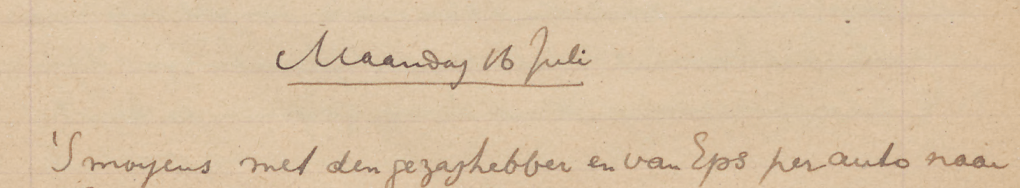 Maandag 16 Juli
'S morgens met den gezaghebber en van Eps per auto naar